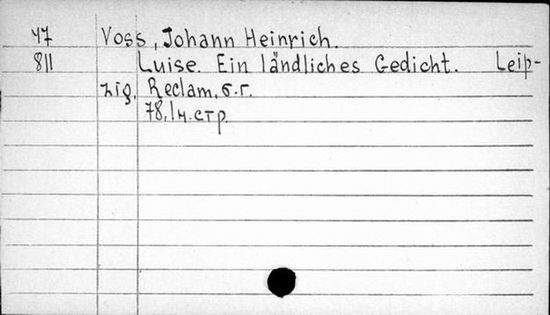 47 Voss, Johann Heinrich.
811 Luise. Ein ländliches Gedicht. Leip-
zig, Reclam, б.г.
78, 1 н. стр.